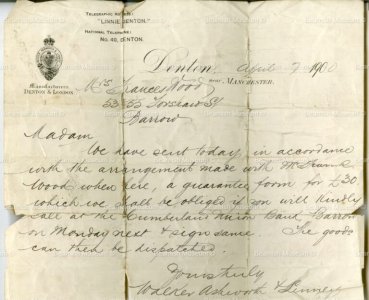 Telegraphic Address:
"LINNIE, DENTON."
National Telephone:
No. 40, DENTON.
Manufactories
DENTON & LONDON
Denton, near MANCHESTER. April 7 1900
Mrs Frances Wood
53 & 55 St
Barrow
Madam
We have sent today in accordance
with the arrangement made with Mr Frank
Wood when here, a guarantee form for £30
which we shall be obliged if you will kindly
call at the Cumberland Union Bank Barrow
on Monday next & sign same. The goods
can then be dispatched.
Yours truly
Walker Ashworth & Linney